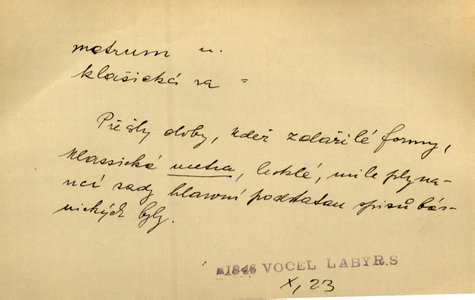 metrum n.
klasická ra =
Přešly doby, kdež zdařilé formy,
klassická metra, lesklé, mile plyna-
ucí řady hlavní podstatau spisů bás-
nických byly.
1846 VOCEL LABYR.S
X, 23